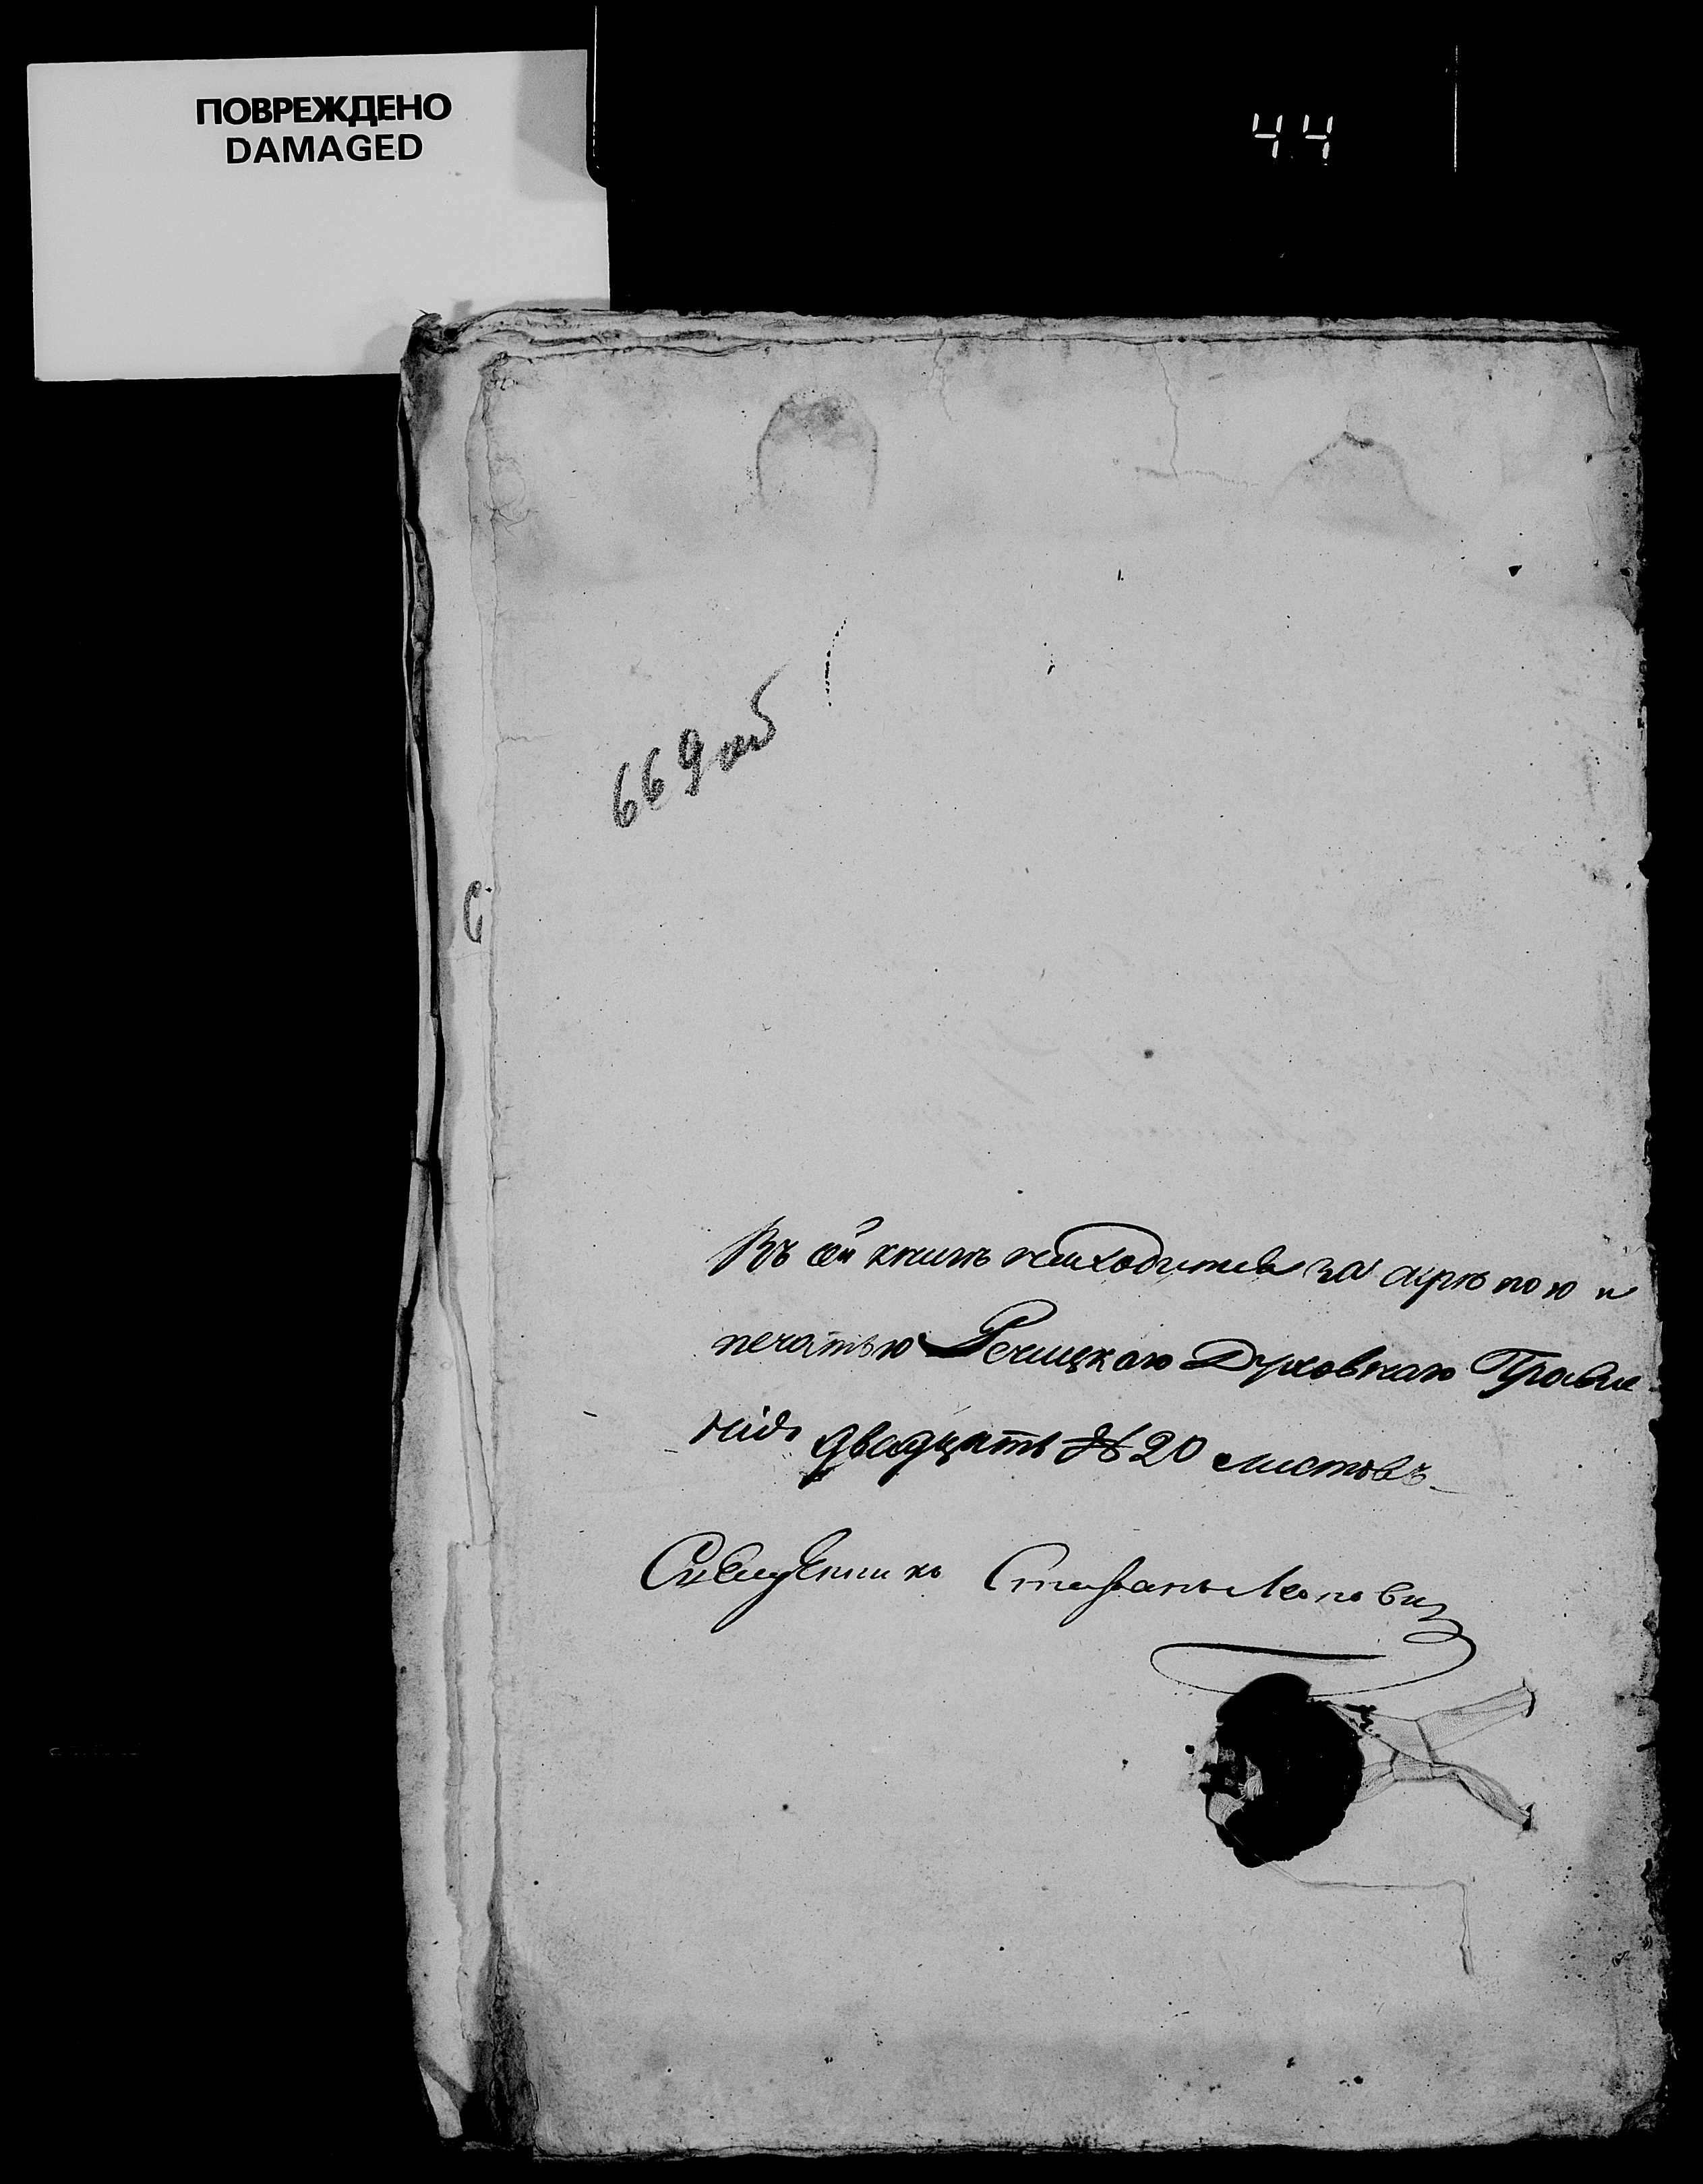 ПОВРЕЖДЕНО
DAMAGED
44
669 об
Въ сей книгѣ находится за скрѣпою и
печатью Речицкаго Духовнаго Правле
нія двадцать № 20 листовъ
Священникъ Стефанъ Лопович